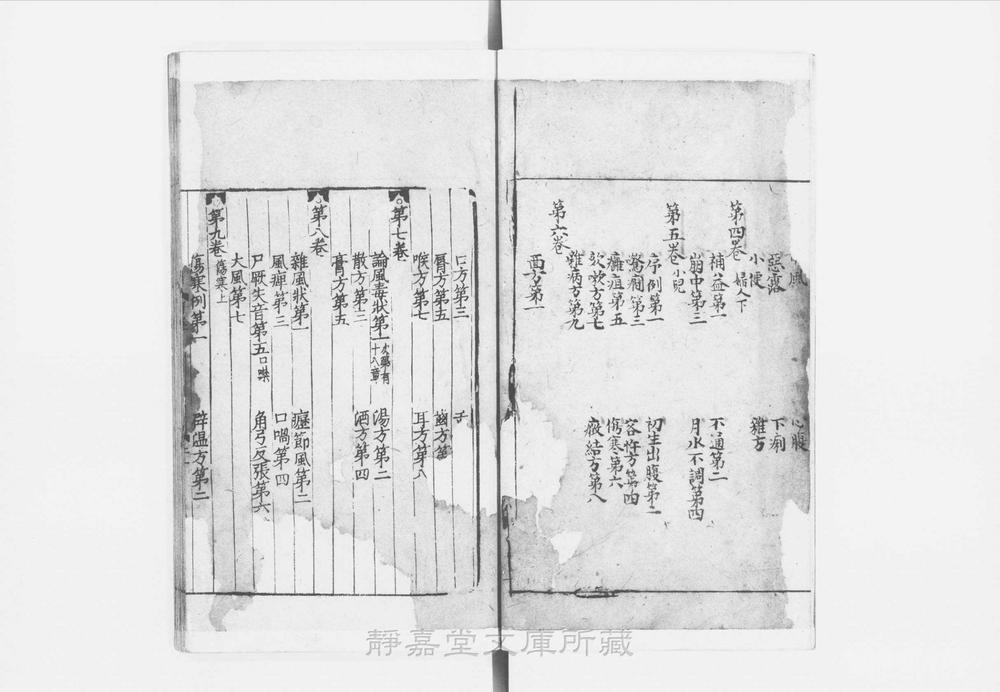 風　心腹
惡露　下痢
小便　雜方
第四卷 婦人下
補益第一　不通第二
崩中第三　月水不調第四
第五卷 小兒
序例第一　初生出腹第二
驚癇第三　客忤方第四
癰疽第五　傷寒第六
欬嗽方第七　癥結方第八
雜病方第九
第六卷
面方第一
口方第三　舌
脣方第五　齒方第
喉方第七　耳方第八
第七卷
論風毒狀第一 次第有十八章　湯方第二
散方第三　酒方第四
膏方第五
第八卷
雜風狀第一　癧節風第二
風痱第三　口喎第四
尸厥失音第五 口噤　角弓反張第六
大風第七
第九卷 傷寒上
傷寒例第一　辟温方第二
靜嘉堂文庫所藏